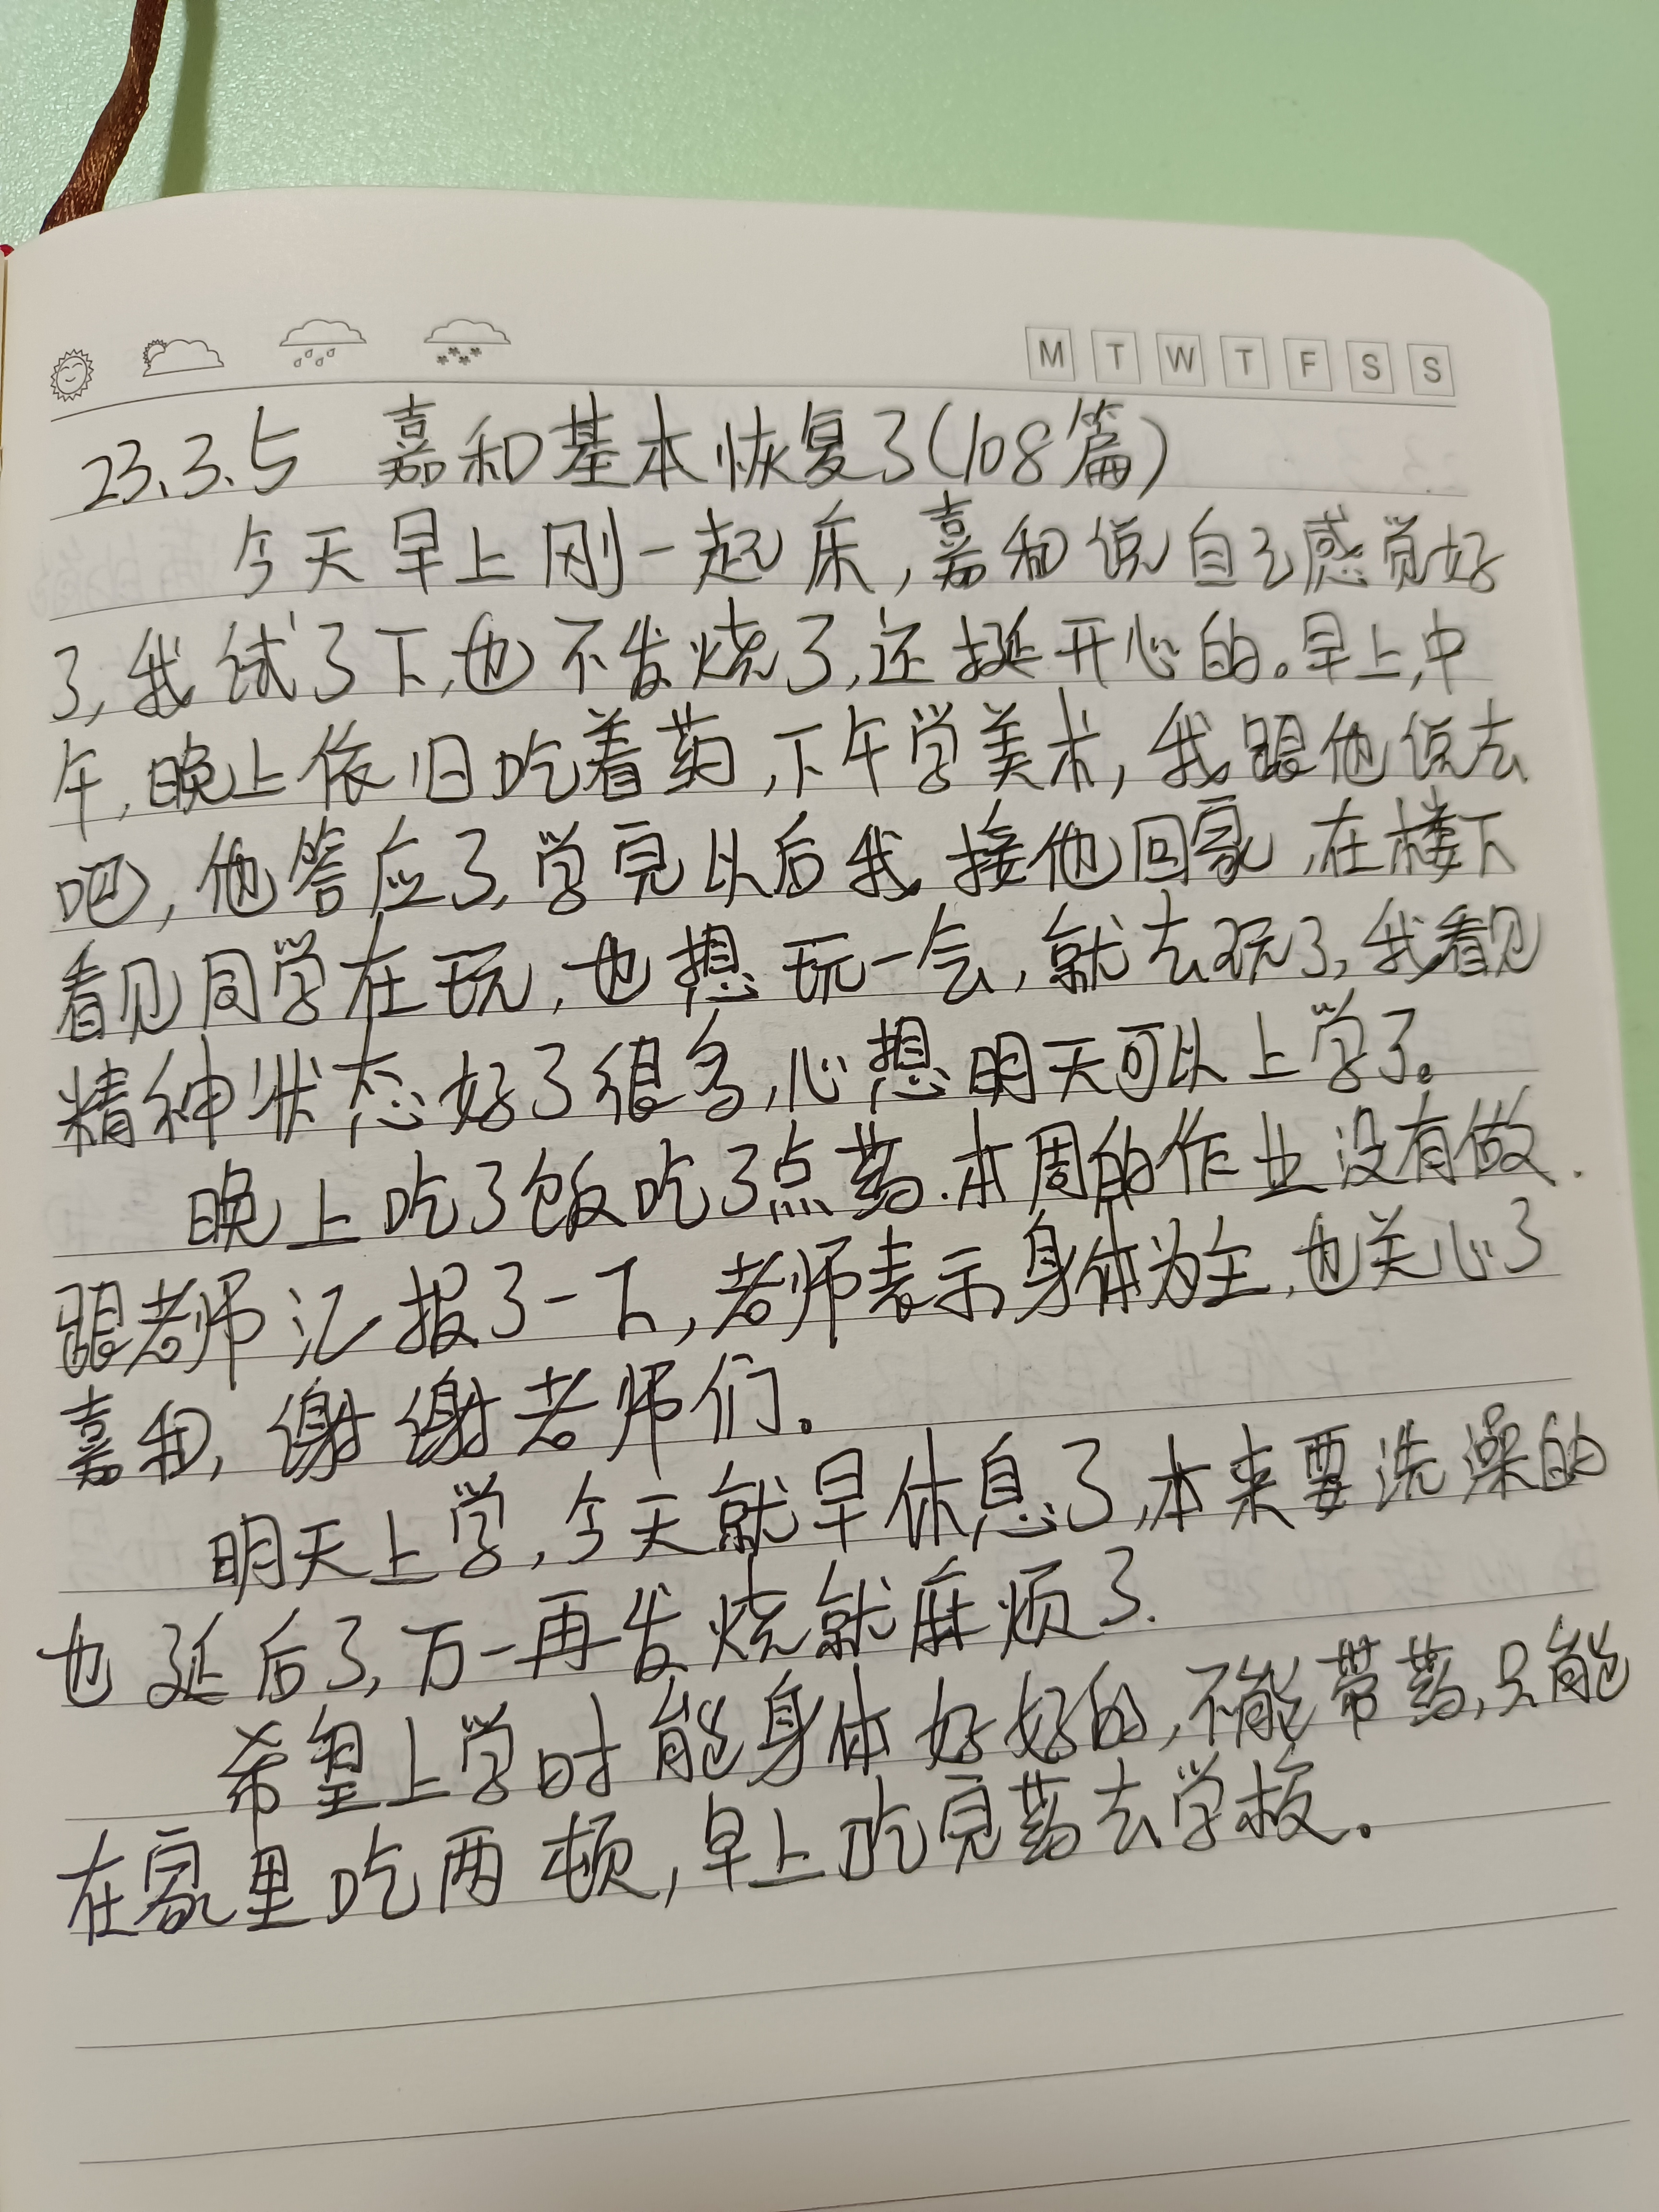 M T W T F S S
23.3.5 嘉和基本恢复了(108篇)
今天早上刚一起床,嘉和说自己感觉好
了,我试了下,也不发烧了,还挺开心的。早上,中
午,晚上依旧吃着药,下午学美术,我跟他说去
吧,他答应了,学完以后我接他回家,在楼下
看见同学在玩,也想玩一会,就去玩了,我看见
精神状态好了很多,心想明天可以上学了。
晚上吃了饭吃了点药.本周的作业没有做.
跟老师汇报了一下,老师表示身体为主,也关心了
嘉和,谢谢老师们。
明天上学,今天就早休息了,本来要洗澡的
也延后了,万一再发烧就麻烦了.
希望上学时能身体好好的,不能带药,只能
在家里吃两顿,早上吃完药去学校。